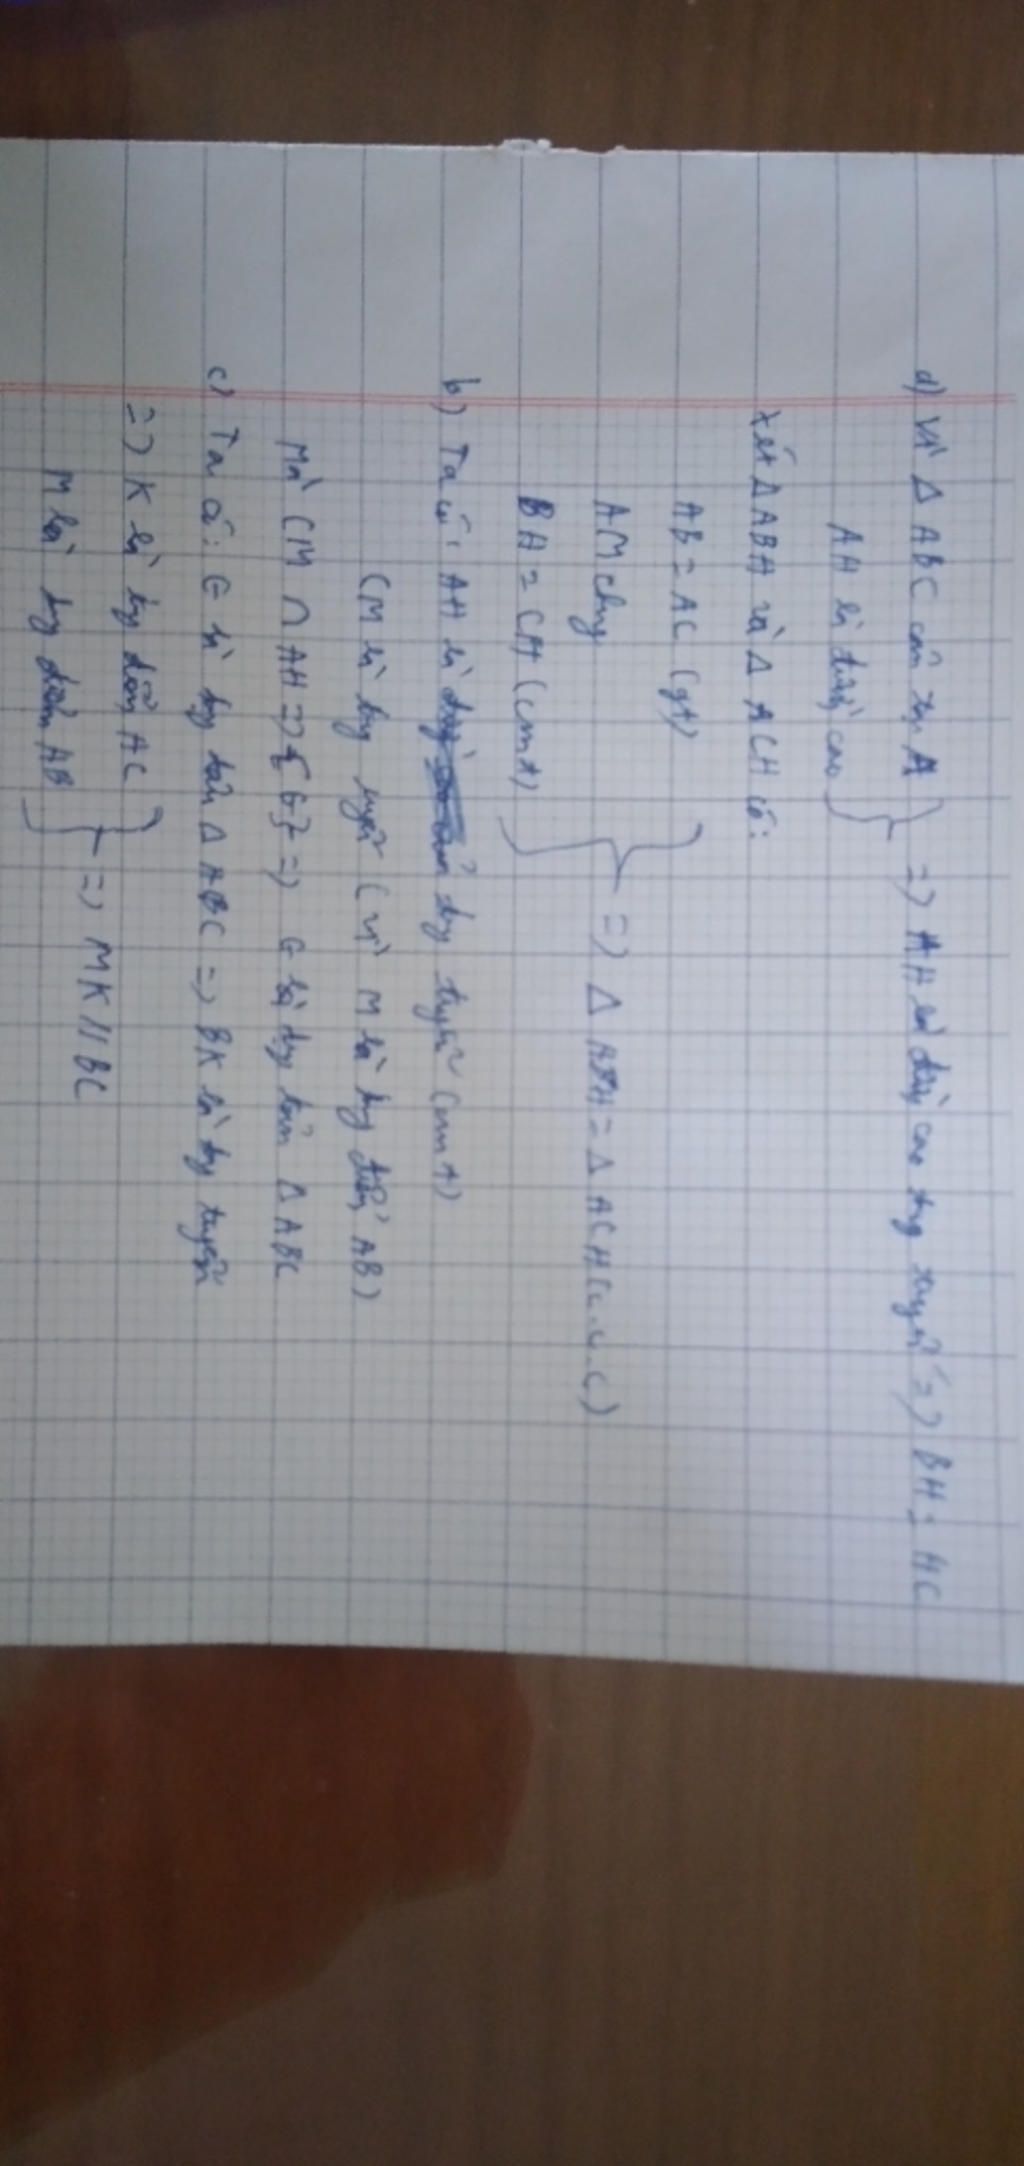 a) Vì Δ ABC cân tại A } => AH là đường cao trung tuyến => BH = HC
AH là đường cao
Xét Δ ABH và Δ ACH có:
AB = AC (gt)
AM chung } => Δ ABH = Δ ACH (c.c.c)
BH = CH (cmt)
b) Ta có: AH là trung tuyến (cmt)
CM là trung tuyến (vì M là trung điểm AB)
Mà CM ∩ AH => { G } => G là trung tâm Δ ABC
c) Ta có: G là trung tâm Δ ABC => BK là trung tuyến
=> K là trung điểm AC } => MK // BC
M là trung điểm AB